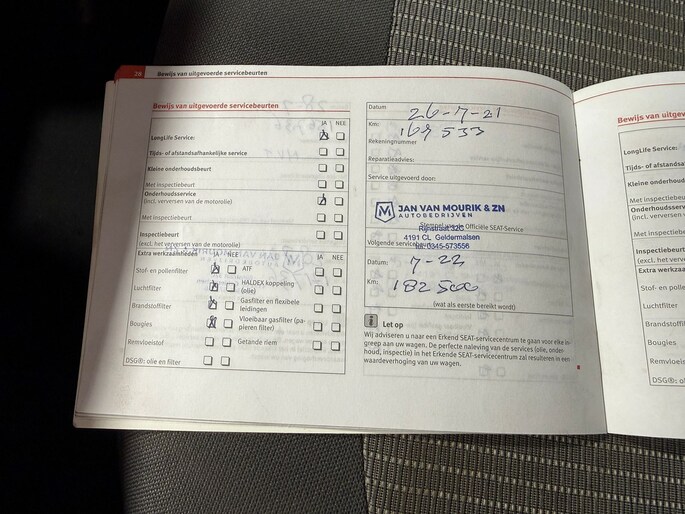 28 Bewijs van uitgevoerde servicebeurten
Bewijs van uitgevoerde servicebeurten
JA NEE
LongLife Service:
Tijds- of afstandsafhankelijke service
Kleine onderhoudsbeurt
Met inspectiebeurt
Onderhoudsservice
(incl. verversen van de motorolie)
Met inspectiebeurt
Inspectiebeurt
(excl. het verversen van de motorolie)
Extra werkzaamheden
JA NEE JA NEE
Stof- en pollenfilter
ATF
Luchtfilter
HALDEX koppeling
(olie)
Brandstoffilter
Gasfilter en flexibele
leidingen
Bougies
Vloeibaar gasfilter (pa-
pieren filter)
Remvloeistof:
Getande riem
DSG®: olie en filter
Datum
26-7-21
Km:
169 533
Rekeningnummer
Reparatieadvies:
Service uitgevoerd door:
JAN VAN MOURIK & ZN
AUTOBEDRIJVEN
Stempel van de Officiële SEAT-Service
Rijnstraat 32C
4191 CL Geldermalsen
tel. 0345-573556
Volgende service
Datum:
7-22
Km:
182 500
(wat als eerste bereikt wordt)
i Let op
Wij adviseren u naar een Erkend SEAT-servicecentrum te gaan voor elke in-
greep aan uw wagen. De perfecte naleving van de services (olie, onder-
houd, inspectie) in het Erkende SEAT-servicecentrum zal resulteren in een
waardeverhoging van uw wagen.
Bewijs van uitgevoerde
LongLife Service:
Tijds- of afstandsa
Kleine onderhouds
Met inspectiebeurt
Onderhoudsservic
(incl. verversen va
Met inspectiebeurt
Inspectiebeurt
(excl. het ververse
Extra werkzaamhe
Stof- en pollen
Luchtfilter
Brandstoffilter
Bougies
Remvloeistof
DSG®: olie en